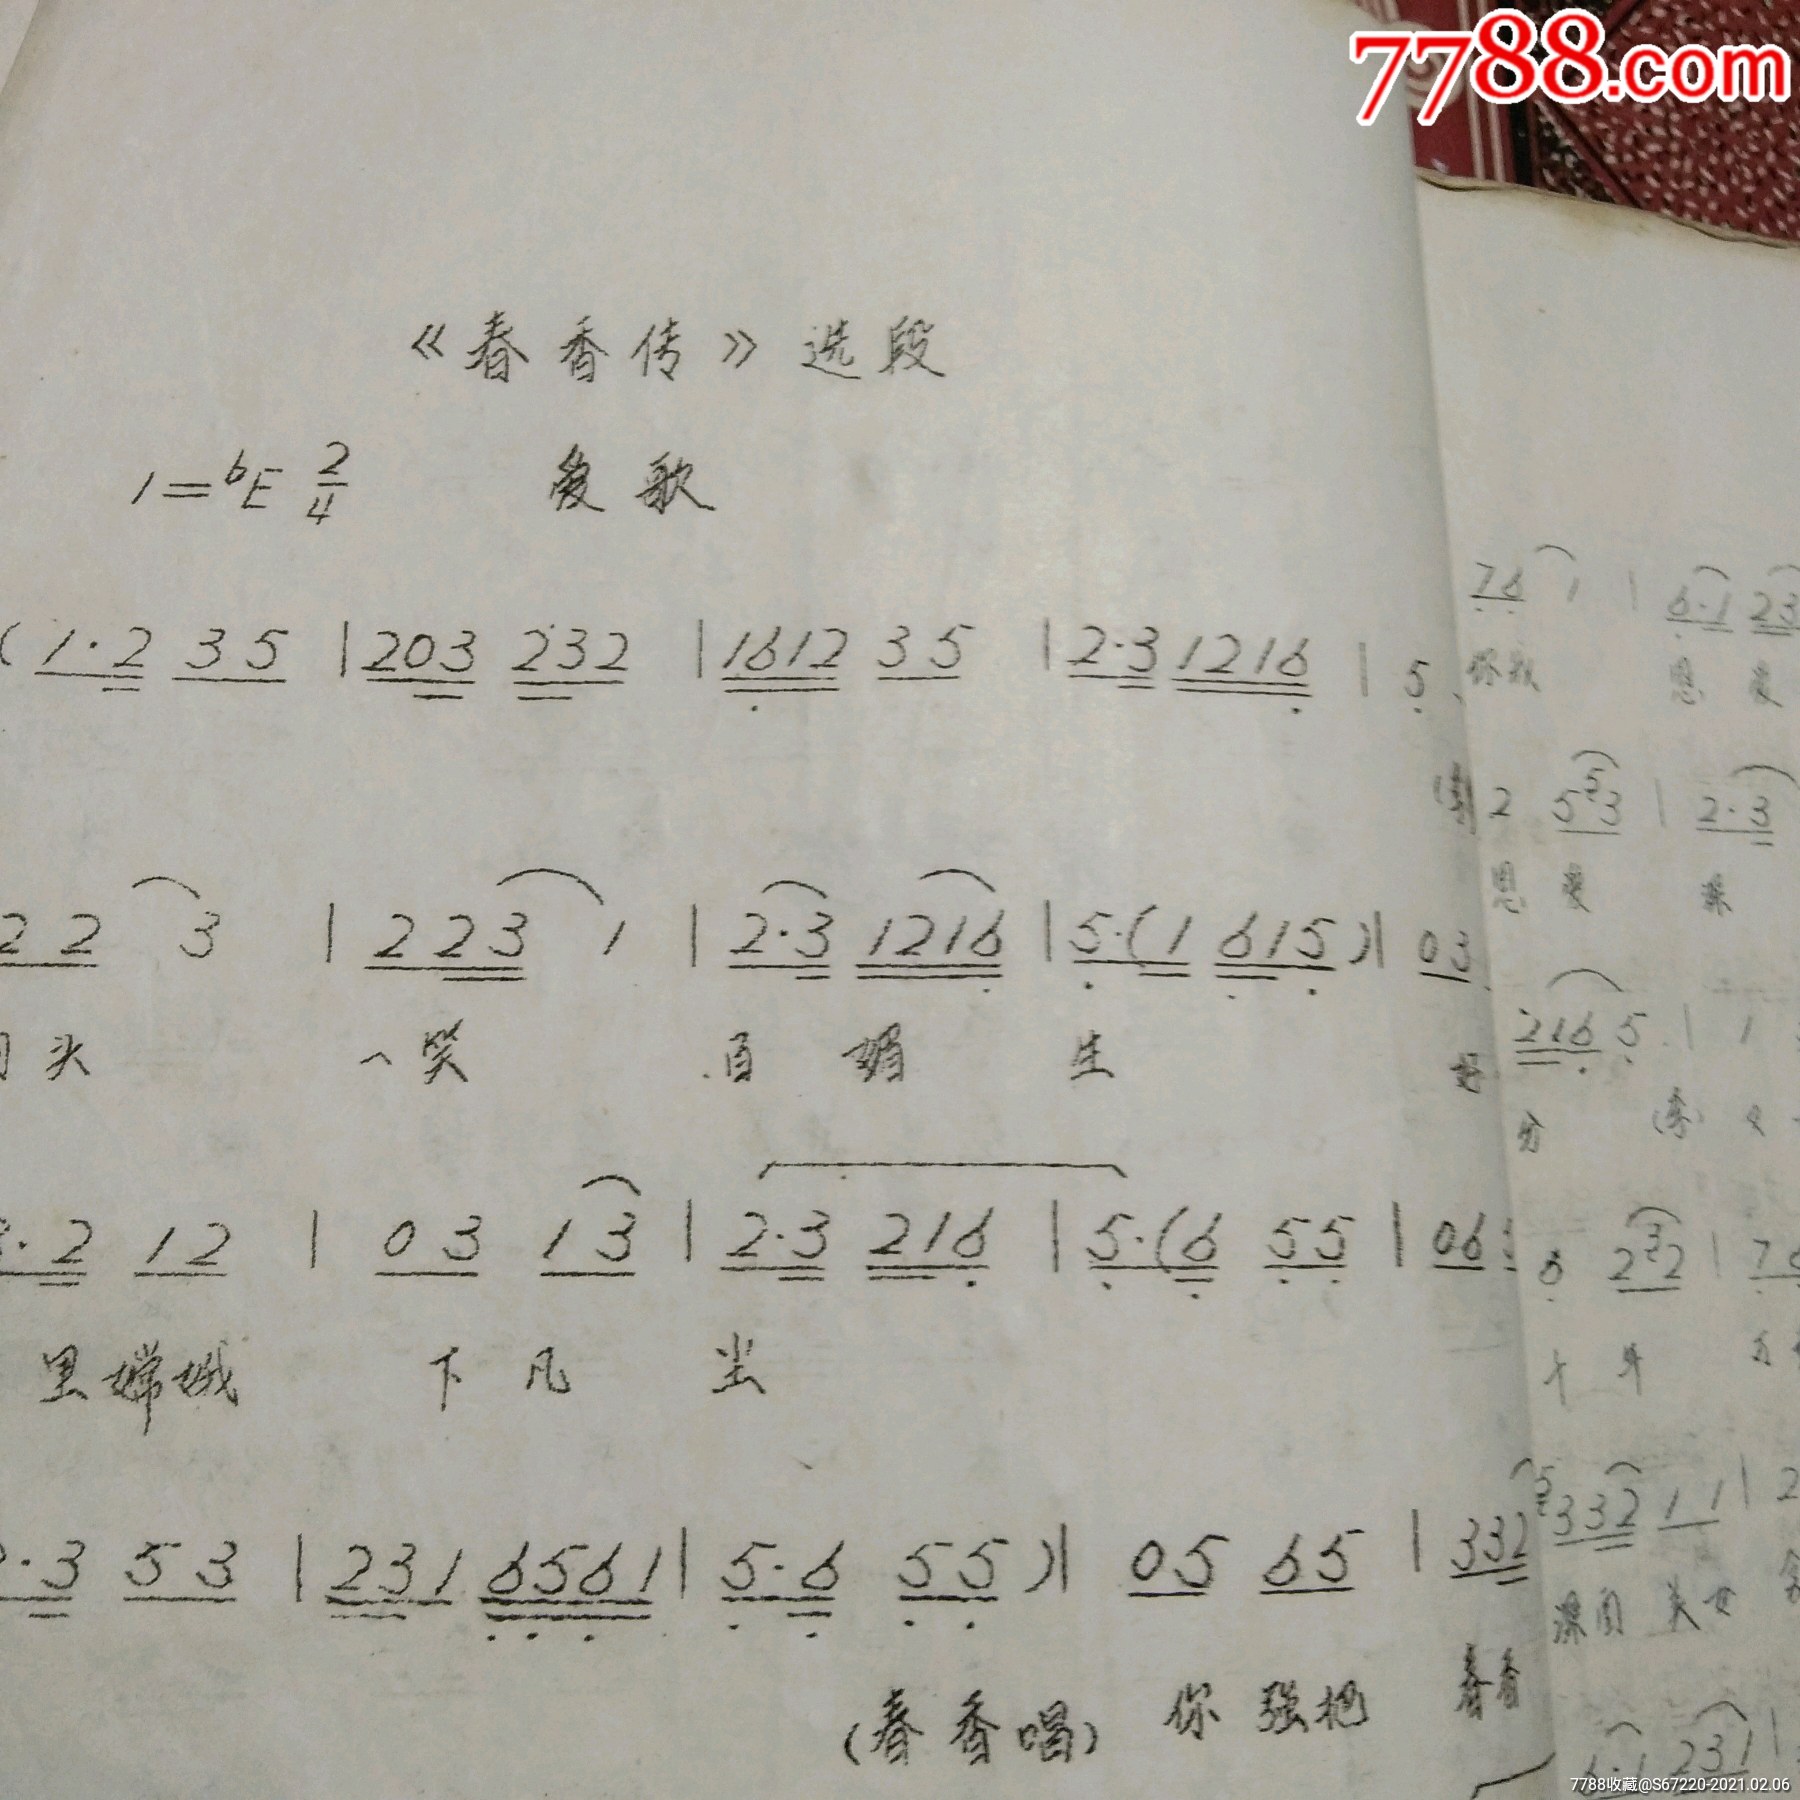 7788.com
《春香传》选段
1=bE 2/4 爱歌
(1·2 35 |203 232 |1612 35 |2·3 1216 | 5
22 3 | 223 1 | 2·3 1216 | 5·(1 615)| 03
头 一笑 百媚 生
·2 12 | 03 13 | 2·3 216 | 5·(6 55 | 06
里嫦娥 下凡 尘
·3 53 | 231 6561 | 5·6 55 )| 05 65 | 332
(春香唱) 你 强把 春香
76 1 | 6·1 23
你我 恩 爱
2 553 | 2·3
恩爱 深
216 5 | 1
分
232 | 7
332 11 | 2
深闺 美女
6·1 231 |
7788收藏@S67220-2021.02.06